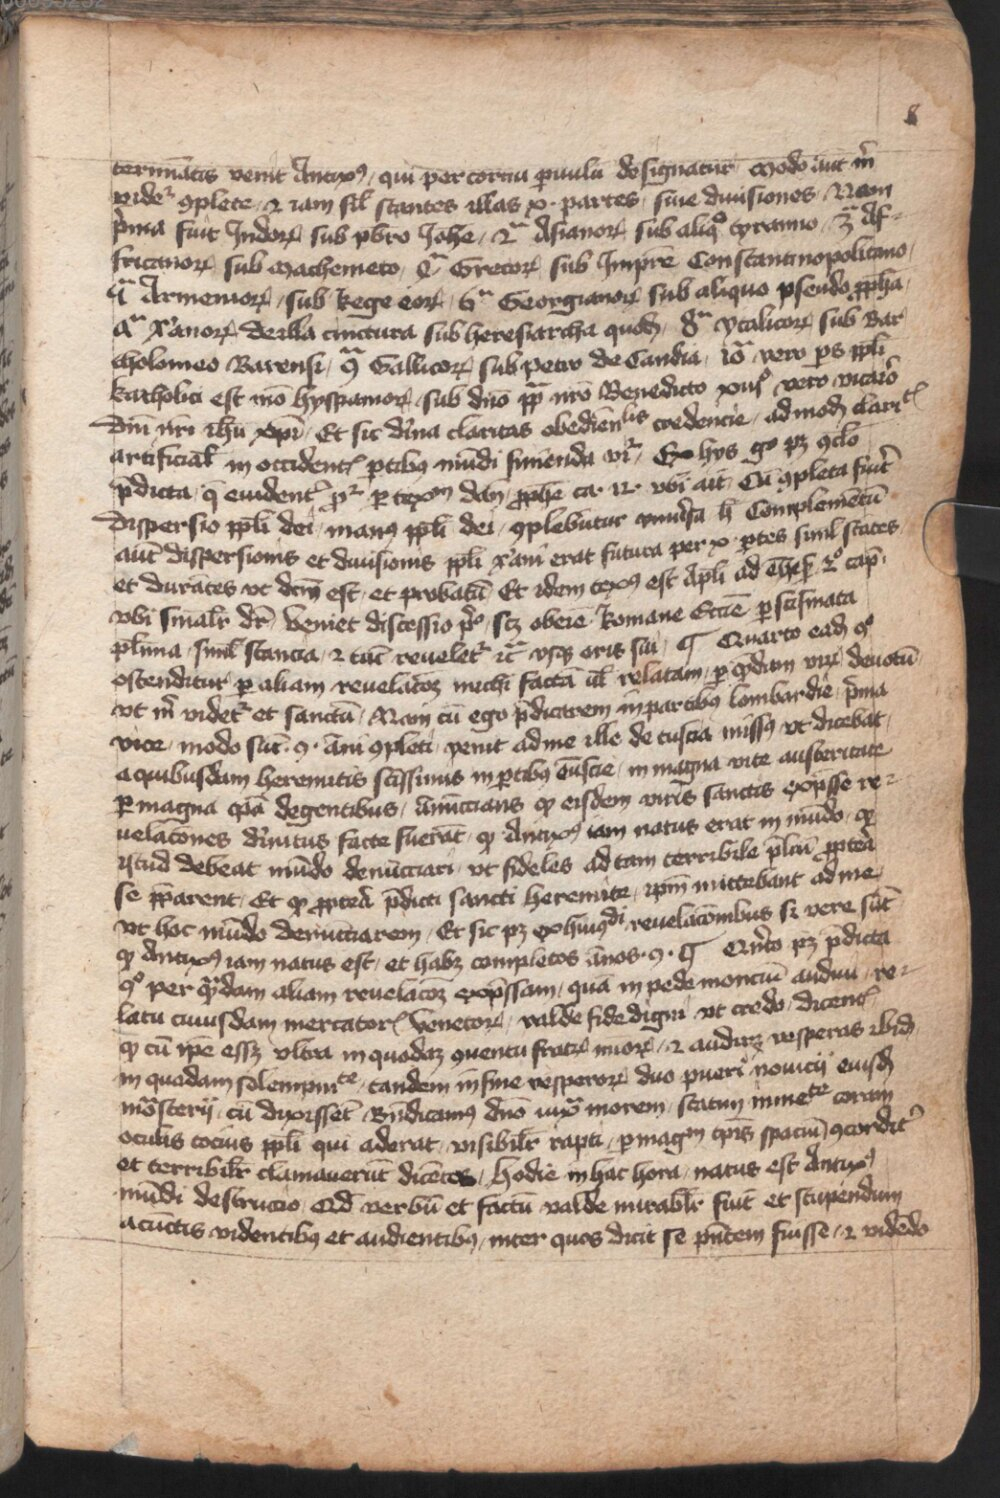 8
terminatis venit Antixps / qui per cornu pvulu designatur Modo aut m̄
vider̄ 9plete / ⁊ iam sil stantes illas x · partes / siue diuisiones / Nam
p̄ma fuit Indoꝝ sub pbro Iohe / 2ª Asianoꝝ sub aliqº tyranno / 3ª Af-
fricanoꝝ sub Machemeto / 4ª Grecoꝝ sub Impre Constantinopolitano /
5ª Armenioꝝ / sub Rege eoꝝ / 6ª Georgianoꝝ sub aliquo pseudo ppha /
7ª x̄anoꝝ de illa cinctura sub heresiarcha quodā / 8ª ytalicoꝝ sub Bar
tholomeo Barensi / 9ª Gallicoꝝ sub petro de Candia / 10ª vero ps ppli
katholici est mō hyspanoꝝ / sub dno pp̄ nro Benedicto xiijº vero vicario
Dni nri ihu xpi / Et sic diuina claritas obedientialis credencie / ad modū
artificial in occident ptibꝫ mūdi finienda vr / Ex hys gº pꝫ 9clo
p̄dicta q̄ euident pr p textū dan pphe ca · 12 · vbi ait Cū 9pleta fuit
dispersio ppli dei / manꝫ ppli dei / 9plebūtur vniusa h Complementū
aut dispersionis et diuisionis ppli x̄ani erat futura per x ptes simul stātes
et durātes vt dcm est / et probatū Et idem textꝫ est Apli ad 2º cap̄
vbi similr dr Veniet discessio pº / scꝫ obedie Romane Eccie p scismata
plima / simul stancia / ⁊ tūc reueletr oris sui / ¶ Quarto eadē 9º
ostenditur p aliam reuelacōꝫ michi factā ul relatam / p q̄dam viꝝ deuotū
vt m̄ videtr et sanctū / Nam cū ego p̄dicarem in partibꝫ lombardie p̄ma
vice / modo sūt · 9 · āni 9pleti / venit ad me ille de tuscia missꝫ vt dicebat
a quibusdam heremitis scissimis in ptibꝫ tuscie / in magna vite austeritate
p magna tpa degentibus / Annūccians qꝫ eisdem viris sanctis expsse re-
uelacōnes diuinitus facte fuerāt / qꝫ Antixps iam natus erat in mūdo qꝫ
istud debeat mūdo denūcciari / vt fideles ad tam terribile pliū pptea
se pparent / Et qꝫ pptea p̄dicti sancti heremite / ipm mittebant ad me
vt hoc mūdo denūcciarem / Et sic pꝫ ex huiꝰdi reuelacōnibus si vere sūt
qꝫ Antixps iam natus est / et habꝫ completos ānos · 9 · ¶ Quito pꝫ p̄dicta
9º per q̄dam aliam reuelacōꝫ expssam / quā in pede moncium audiui / re-
latu cuiusdam mercator Venetoꝝ / valde fide digni / vt credo / dicent
qꝫ cū ipe essꝫ vltra in quodaꝫ 9uentu fratꝝ minoꝝ / ⁊ audirꝫ vesperas ibid
in quadam solempnite / tandem in fine vesperoꝝ duo pueri nouicij eiusdē
mōsterij / cū dixissēt / Bndicamꝫ dno iuxa morem / statim coram
oculis tocius ppli qui aderat / visibilr rapti / p magm tpis spaciū 9cordit
et terribilr clamauerūt dicētes / Hodie in hac hora / natus est Antixps
mūdi destructio / Qd verbū et factū valde mirabilr fuit et stupendum
acūctis videntibꝫ et audientibꝫ / inter quos dicit se pntem fuisse / ⁊ vidēdo